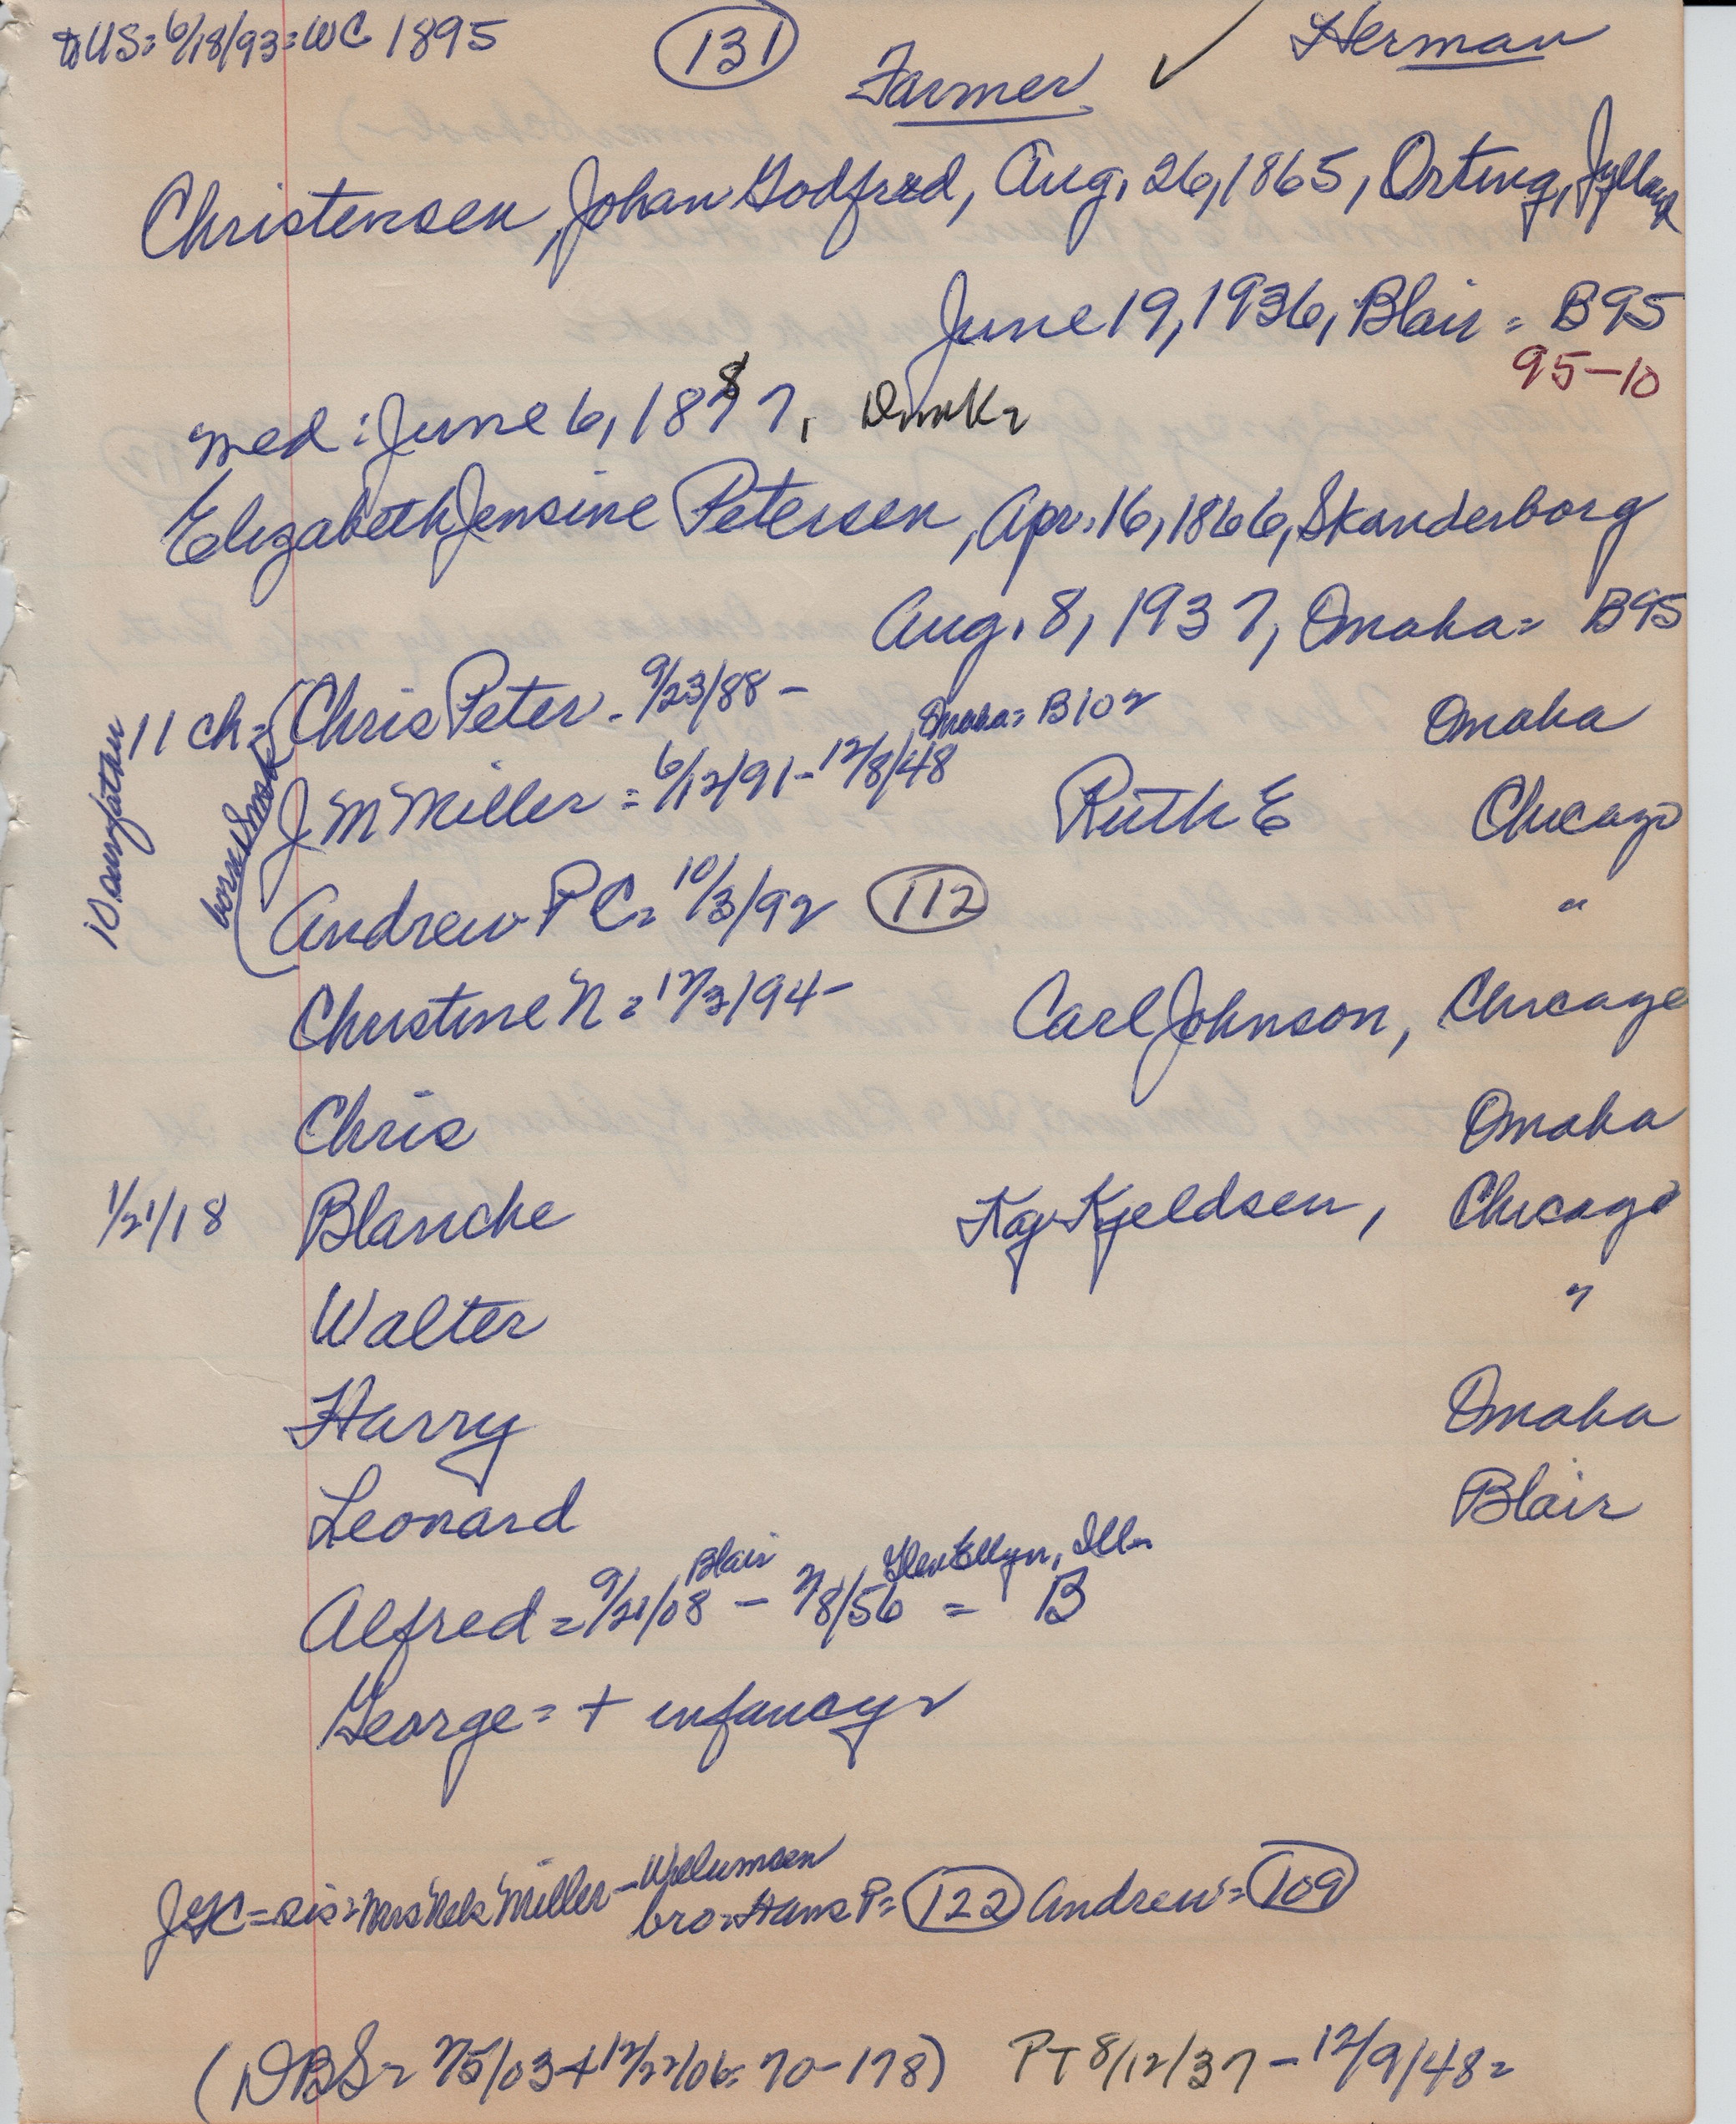 to US = 6/18/93 = WC 1895 (131) Herman
Farmer ✓
Christensen, Johan Godfred, Aug. 26, 1865, Orting, Jylland
June 19, 1936, Blair = B95
95-10
med: June 6, 1887, Dmk
Elizabeth Jensine Petersen, Apr. 16, 1866, Skanderborg
Aug. 8, 1937, Omaha = B95
11 ch = Chris Peter - 9/23/88 - Omaha
J M Miller = 6/12/91 - 12/8/48 Omaha = B102 Ruth E Chicago
born
Andrew P C = 10/3/92 (112) "
Christine N = 12/3/94 - Carl Johnson, Chicago
Chris Omaha
1/21/18 Blanche Kay Kjeldsen, Chicago
Walter "
Harry Omaha
Leonard Blair
Alfred = 9/21/08 Blair - 2/8/56 Glen Ellyn, Ill. = B
George = + infancy
JGC = sis = Mrs Nels Miller -
bro = Hans P = (122) Andrew = (109)
(DBS = 2/5/03 + 12/22/06 = 70-178) PT 8/12/37 - 12/9/48 =